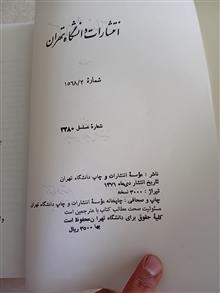 انتشارات دانشگاه تهران
شمارۀ ۱۵۶۸/۲
شماره مسلسل ۳۳۸۰
ناشر : مؤسسۀ انتشارات و چاپ دانشگاه تهران
تاریخ انتشار دی‌ماه ۱۳۷۱
تیراژ : ۳۰۰۰ نسخه
چاپ و صحافی : چاپخانه مؤسسۀ انتشارات و چاپ دانشگاه تهران
مسئولیت صحت مطالب کتاب با مترجمین است
کلیۀ حقوق برای دانشگاه تهران محفوظ است
بها ۳۵۰۰ ریال